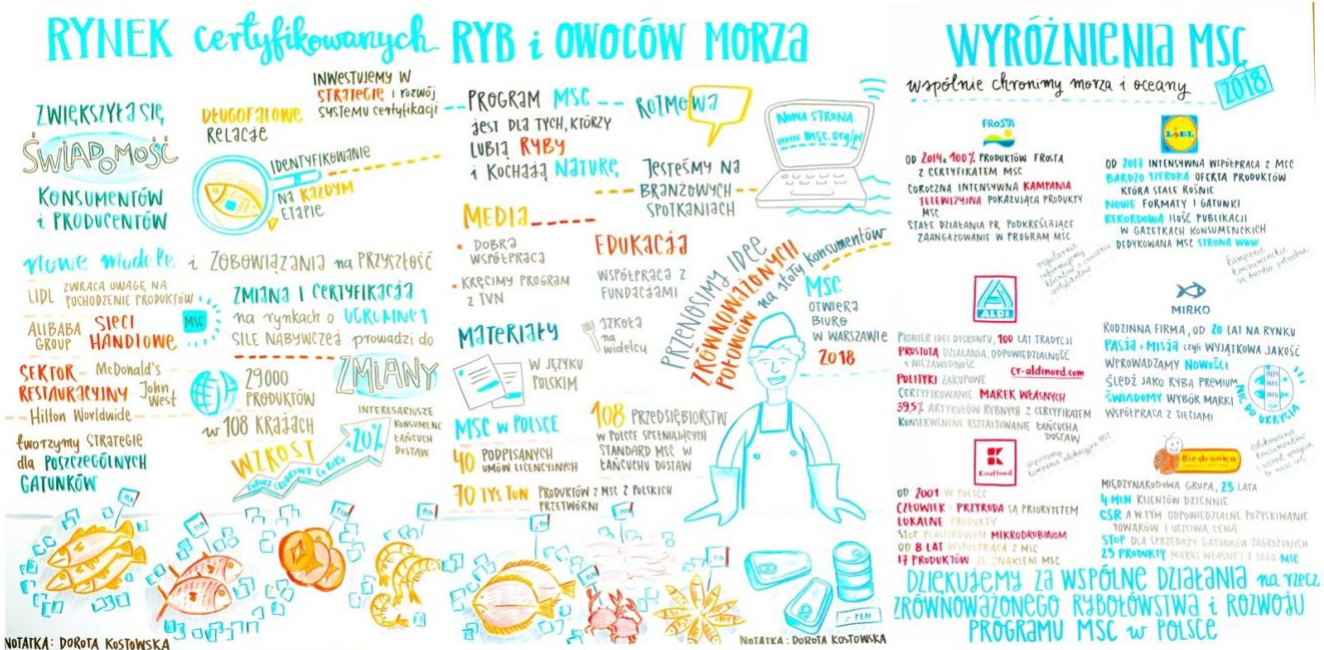 RYNEK certyfikowanych RYB i OWOCÓW MORZA
ZWIĘKSZYŁA SIĘ
ŚWIADOMOŚĆ
KONSUMENTÓW
i PRODUCENTÓW
DŁUGOFALOWE
RELACJE
INWESTUJEMY W
STRATEGIE i rozwój
SYSTEMU certyfikacji
IDENTYFIKOWANIE
NA KAŻDYM
ETAPIE
Nowe modele i ZOBOWIĄZANIA na PRZYSZŁOŚĆ
LIDL ZWRACA UWAGĘ NA
POCHODZENIE PRODUKTÓW
ALIBABA
GROUP
SIECI
HANDLOWE
MSC
SEKTOR
RESTAURACYJNY
McDonald's
John
West
Hilton Worldwide
tworzymy STRATEGIE
dla POSZCZEGÓLNYCH
GATUNKÓW
ZMIANA I CERTYFIKACJA
na rynkach o UGRUNT
SILE NABYWCZEJ prowadzi do
ZMIANY
29000
PRODUKTÓW
w 108 KRAJACH
WZROST
20%
INTERESARIUSZE
KONSUMENC
ŁAŃCUCH
DOSTAW
NOTATKA: DOROTA KOSTOWSKA
PROGRAM MSC
jest DLA TYCH, KTÓRZY
LUBIĄ RYBY
i KOCHAJĄ NATURĘ
ROZMOWA
JESTEŚMY NA
BRANŻOWYCH
SPOTKANIACH
NOWA STRONA
www.msc.org/pl
MEDIA
• DOBRA
WSPÓŁPRACA
• KRĘCIMY PROGRAM
Z TVN
EDUKACJA
WSPÓŁPRACA Z
FUNDACJAMI
SZKOŁA
na
widelcu
MATERIAŁY
W JĘZYKU
POLSKIM
PRZENOSIMY IDEE
ZRÓWNOWAŻONYCH
POŁOWÓW
na stoły konsumentów
MSC
OTWIERA
BIURO
W WARSZAWIE
2018
MSC w POLSCE
40 PODPISANYCH
UMÓW LICENCYJNYCH
108 PRZEDSIĘBIORSTW
W POLSCE SPEŁNIAJĄCYCH
STANDARD MSC W
ŁAŃCUCHU DOSTAW
70 TYS TON PRODUKTÓW Z MSC Z POLSKICH
PRZETWÓRNI
NOTATKA: DOROTA KOSTOWSKA
WYRÓŻNIENIA MSC
wspólnie chronimy morza i oceany
2018
FRoSTA
OD 2014 100% PRODUKTÓW FROSTA
Z CERTYFIKATEM MSC
COROCZNA INTENSYWNA KAMPANIA
TELEWIZYJNA POKAZUJĄCA PRODUKTY
MSC
STAŁE DZIAŁANIA PR PODKREŚLAJĄCE
ZAANGAŻOWANIE W PROGRAM MSC
LIDL
OD 2017 INTENSYWNA WSPÓŁPRACA Z MSC
BARDZO SZEROKA OFERTA PRODUKTÓW
KTÓRA STALE ROŚNIE
NOWE FORMATY I GATUNKI
REKORDOWA ILOŚĆ PUBLIKACJI
W GAZETKACH KONSUMENCKICH
DEDYKOWANA MSC STRONA WWW
regularnie
informujemy
kampanie
konsumenckie
są bardzo potrzebne
ALDI
PIONIER IDEI DYSKONTU, 100 LAT TRADYCJI
PROSTOTA DZIAŁANIA, ODPOWIEDZIALNOŚĆ
i NIEZAWODNOŚĆ
cr-aldinord.com
POLITYKI ZAKUPOWE
CERTYFIKOWANIE MAREK WŁASNYCH
39,5% ARTYKUŁÓW RYBNYCH Z CERTYFIKATEM
KONSEKWENTNE KSZTAŁTOWANIE ŁAŃCUCHA
DOSTAW
MIRKO
RODZINNA FIRMA, OD 20 LAT NA RYNKU
PASJA i MISJA czyli WYJĄTKOWA JAKOŚĆ
WPROWADZAMY NOWOŚCI
ŚLEDŹ JAKO RYBA PREMIUM
ŚWIADOMY WYBÓR MARKI
WSPÓŁPRACA Z SIECIAMI
INFO
INFO
INFO
NIC DO UKRYCIA
Kaufland
OD 2001 W POLSCE
CZŁOWIEK i PRZYRODA SĄ PRIORYTETEM
LOKALNE PRODUKTY
STOP PLASTIKOWYM MIKRODROBINOM
OD 8 LAT WSPÓŁPRACA Z MSC
17 PRODUKTÓW ZE ZNAKIEM MSC
Biedronka
MIĘDZYNARODOWA GRUPA, 23 LATA
4 MLN KLIENTÓW DZIENNIE
CSR A W TYM ODPOWIEDZIALNE POZYSKIWANIE
TOWARÓW i UCZCIWA CENA
STOP DLA SPRZEDAŻY GATUNKÓW ZAGROŻONYCH
23 PRODUKTY MARKI WŁASNEJ Z LOGO MSC
DZIĘKUJEMY ZA WSPÓLNE DZIAŁANIA na rzecz
ZRÓWNOWAŻONEGO RYBOŁÓWSTWA i ROZWOJU
PROGRAMU MSC w POLSCE